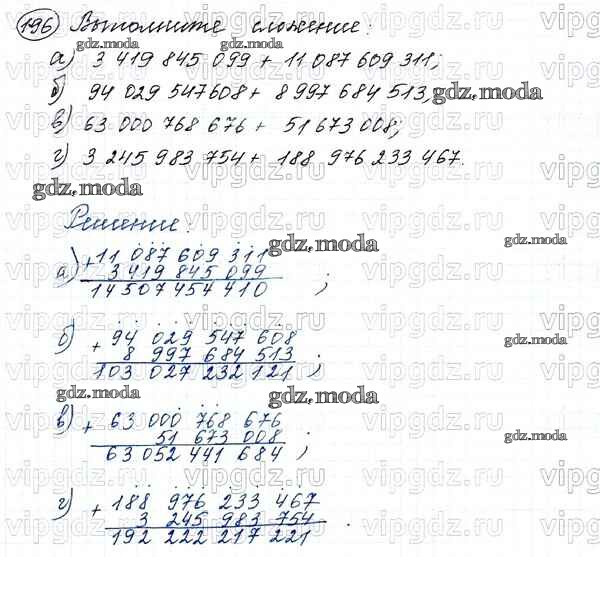 196 Выполните сложение:
а) 3 419 845 099 + 11 087 609 311;
б) 94 029 547 608 + 8 997 684 513,
gdz.moda
в) 63 000 768 676 + 51 673 008;
г) 3 245 983 754 + 188 976 233 467.
gdz.moda
Решение:
а) + 11 087 609 311
3 419 845 099
14 507 454 410 ;
б) + 94 029 547 608
8 997 684 513
103 027 232 121 ;
в) + 63 000 768 676
51 673 008
63 052 441 684 ;
г) + 188 976 233 467
3 245 983 754
192 222 217 221 .
vipgdz.ru